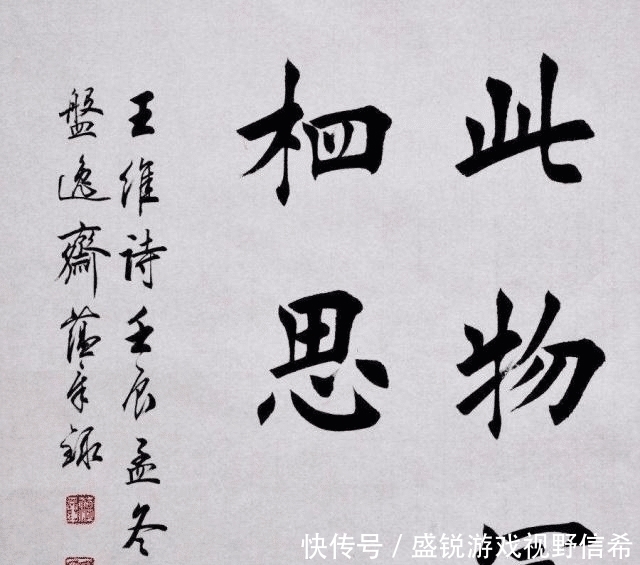 此物
相思
王維詩壬辰孟冬
盤逸齋
快传号 / 盛锐游戏视野信希